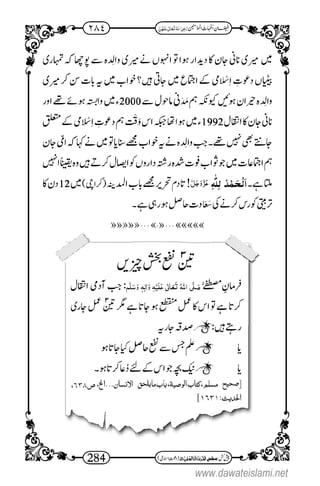 ٢٨٤
میں میری نانی جان کا دیدار ہوا تو انہوں نے میری والدہ سے پوچھا کہ تمہاری
بیٹیاں دعوتِ اسلامی کے اجتماع میں جاتی ہیں؟ خواب میں یہ بات سن کر میری
والدہ حیران ہوئیں کیونکہ ہم مدنی ماحول سے 2000ء میں وابستہ ہوئے تھے اور
نانی جان کا انتقال 1992ء میں ہوا تھا جبکہ اس وَقت ہم دعوتِ اسلامی کے متعلق
جانتے بھی نہیں تھے۔ جب والدہ نے یہ خواب مجھے سنایا تو میں نے کہا کہ نانی جان کو
ہم اجتماعات میں جو ثواب فوت شدہ رشتہ داروں کو ایصال کرتے ہیں وہ یقیناً انہیں
ملتا ہے۔ اَلْحَمْدُ لِلّٰہ عَزَّوَجَلَّ! تادمِ تحریر مجھے باب المدینہ (کراچی) میں 12 دن کا
تربیتی کورس کرنے کی سعادت حاصل ہو رہی ہے۔
تین نفع بخش چیزیں
فرمانِ مصطفٰے صَلَّی اللہُ تَعَالٰی عَلَیْہِ وَاٰلِہٖ وَسَلَّم: جب آدمی انتقال
کرتا ہے تو اس کا عمل منقطع ہو جاتا ہے مگر تین عمل جاری
رہتے ہیں: صدقہ جاریہ
یا علم جس سے نفع حاصل کیا جاتا ہو
یا نیک بچہ جو اس کے لئے دُعا کرتا ہو۔
[صحیح مسلم، کتاب الوصیة، باب ما یلحق الانسان...الخ، ص٦٣٨،
الحدیث: ١٦٣١]
284
www.dawateislami.net